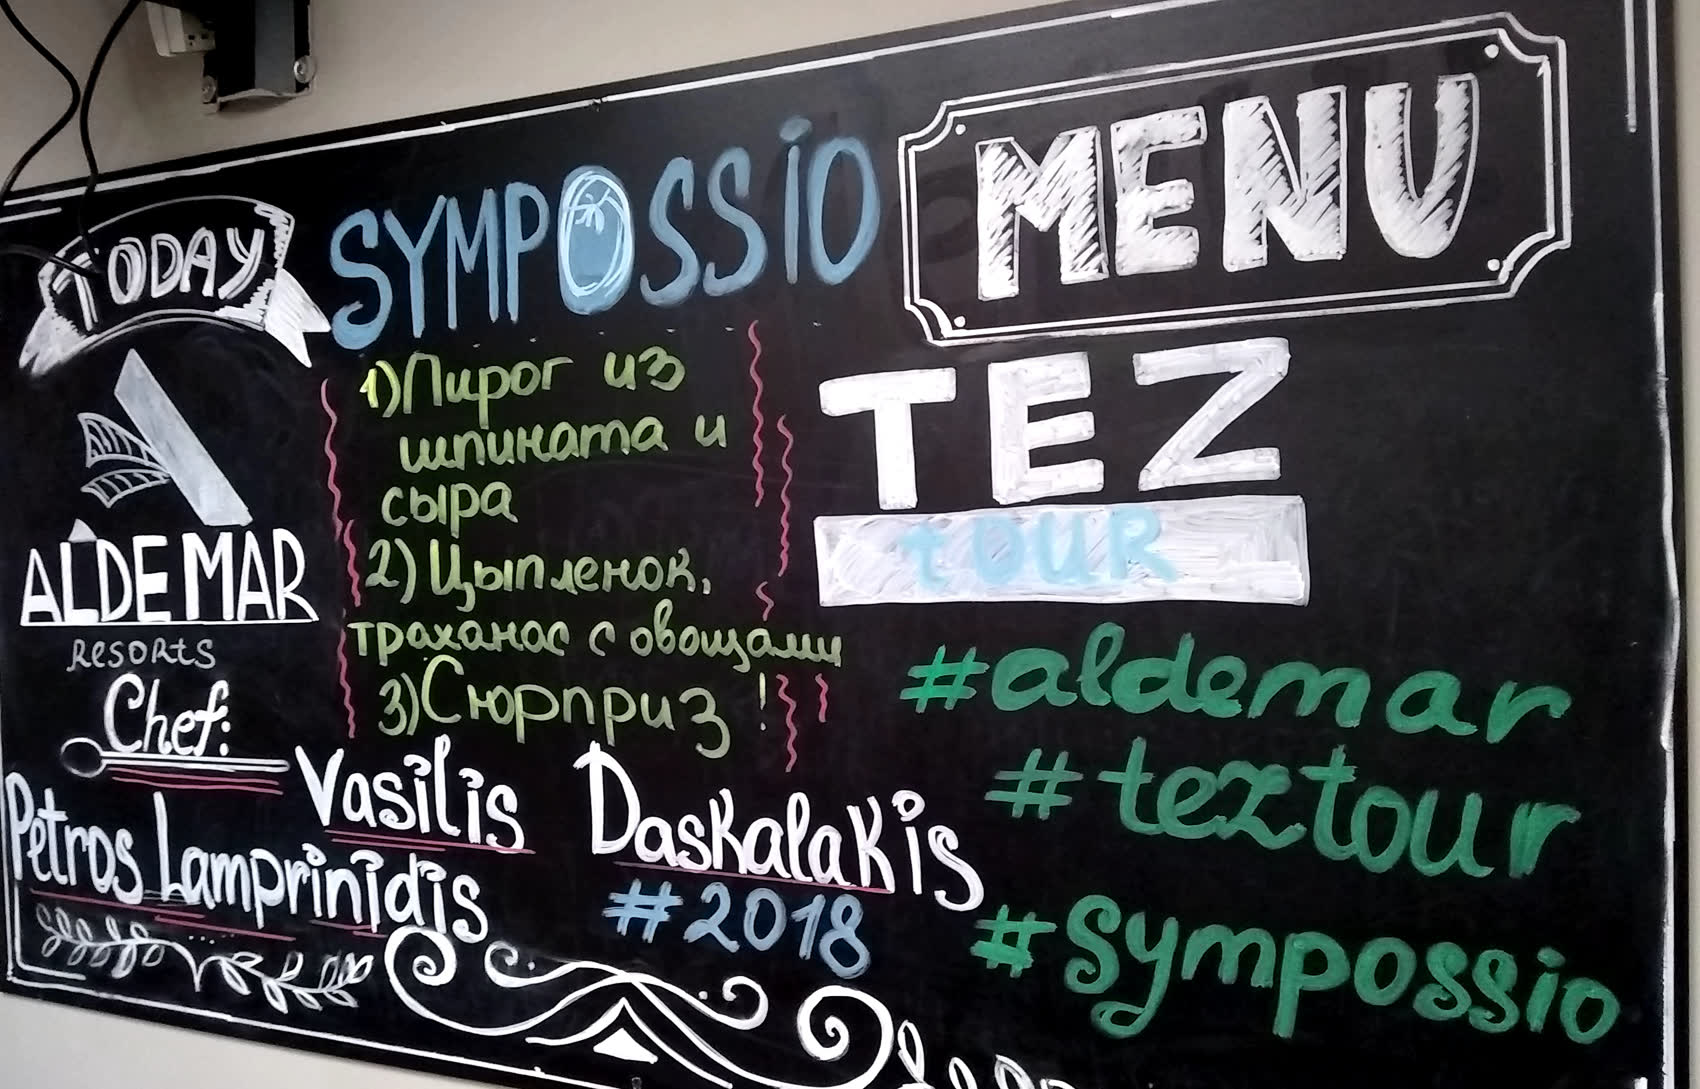 TODAY
SYMPOSSIO
MENU
ALDEMAR
RESORTS
Chef:
1) Пирог из
шпината и
сыра
2) Цыпленок,
траханас с овощами
3) Сюрприз!
TEZ
tOUR
Vasilis Daskalakis
Petros Lamprinidis
#2018
#aldemar
#teztour
#sympossio